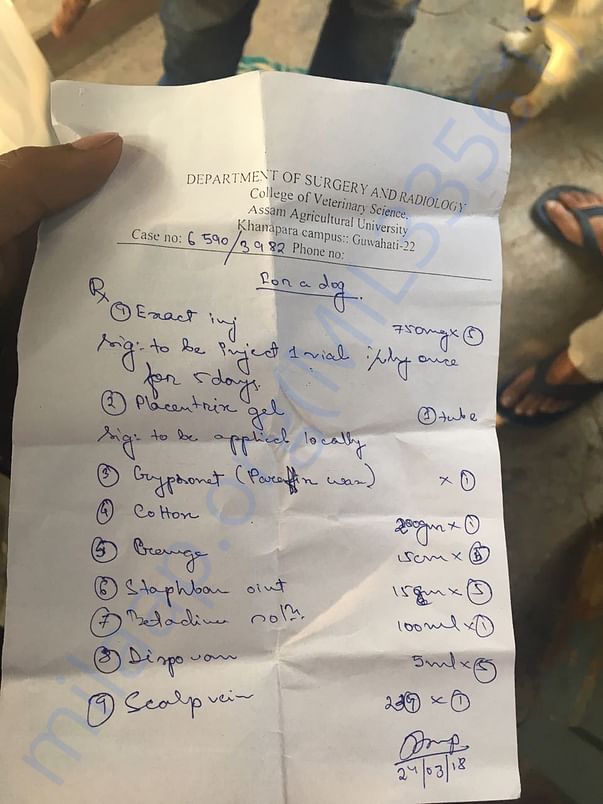 DEPARTMENT OF SURGERY AND RADIOLOGY
College of Veterinary Science,
Assam Agricultural University
Khanapara campus:: Guwahati-22
Case no: 6590/3982 Phone no:
For a dog.
Rx
① Exact inj 750mg x ⑤
Sig:- to be inject 1 vial i/v once
for 5 days.
② Placentrix gel ① tube
Sig:- to be applied locally
③ (Paraffin wax) x ①
④ Cotton 200gm x ①
⑤ 15cm x ⑤
⑥ Staphban oint 15gm x ⑤
⑦ Betadine soln. 100ml x ①
⑧ Dispovan 5ml x ⑤
⑨ Scalp vein x ①
24/03/18